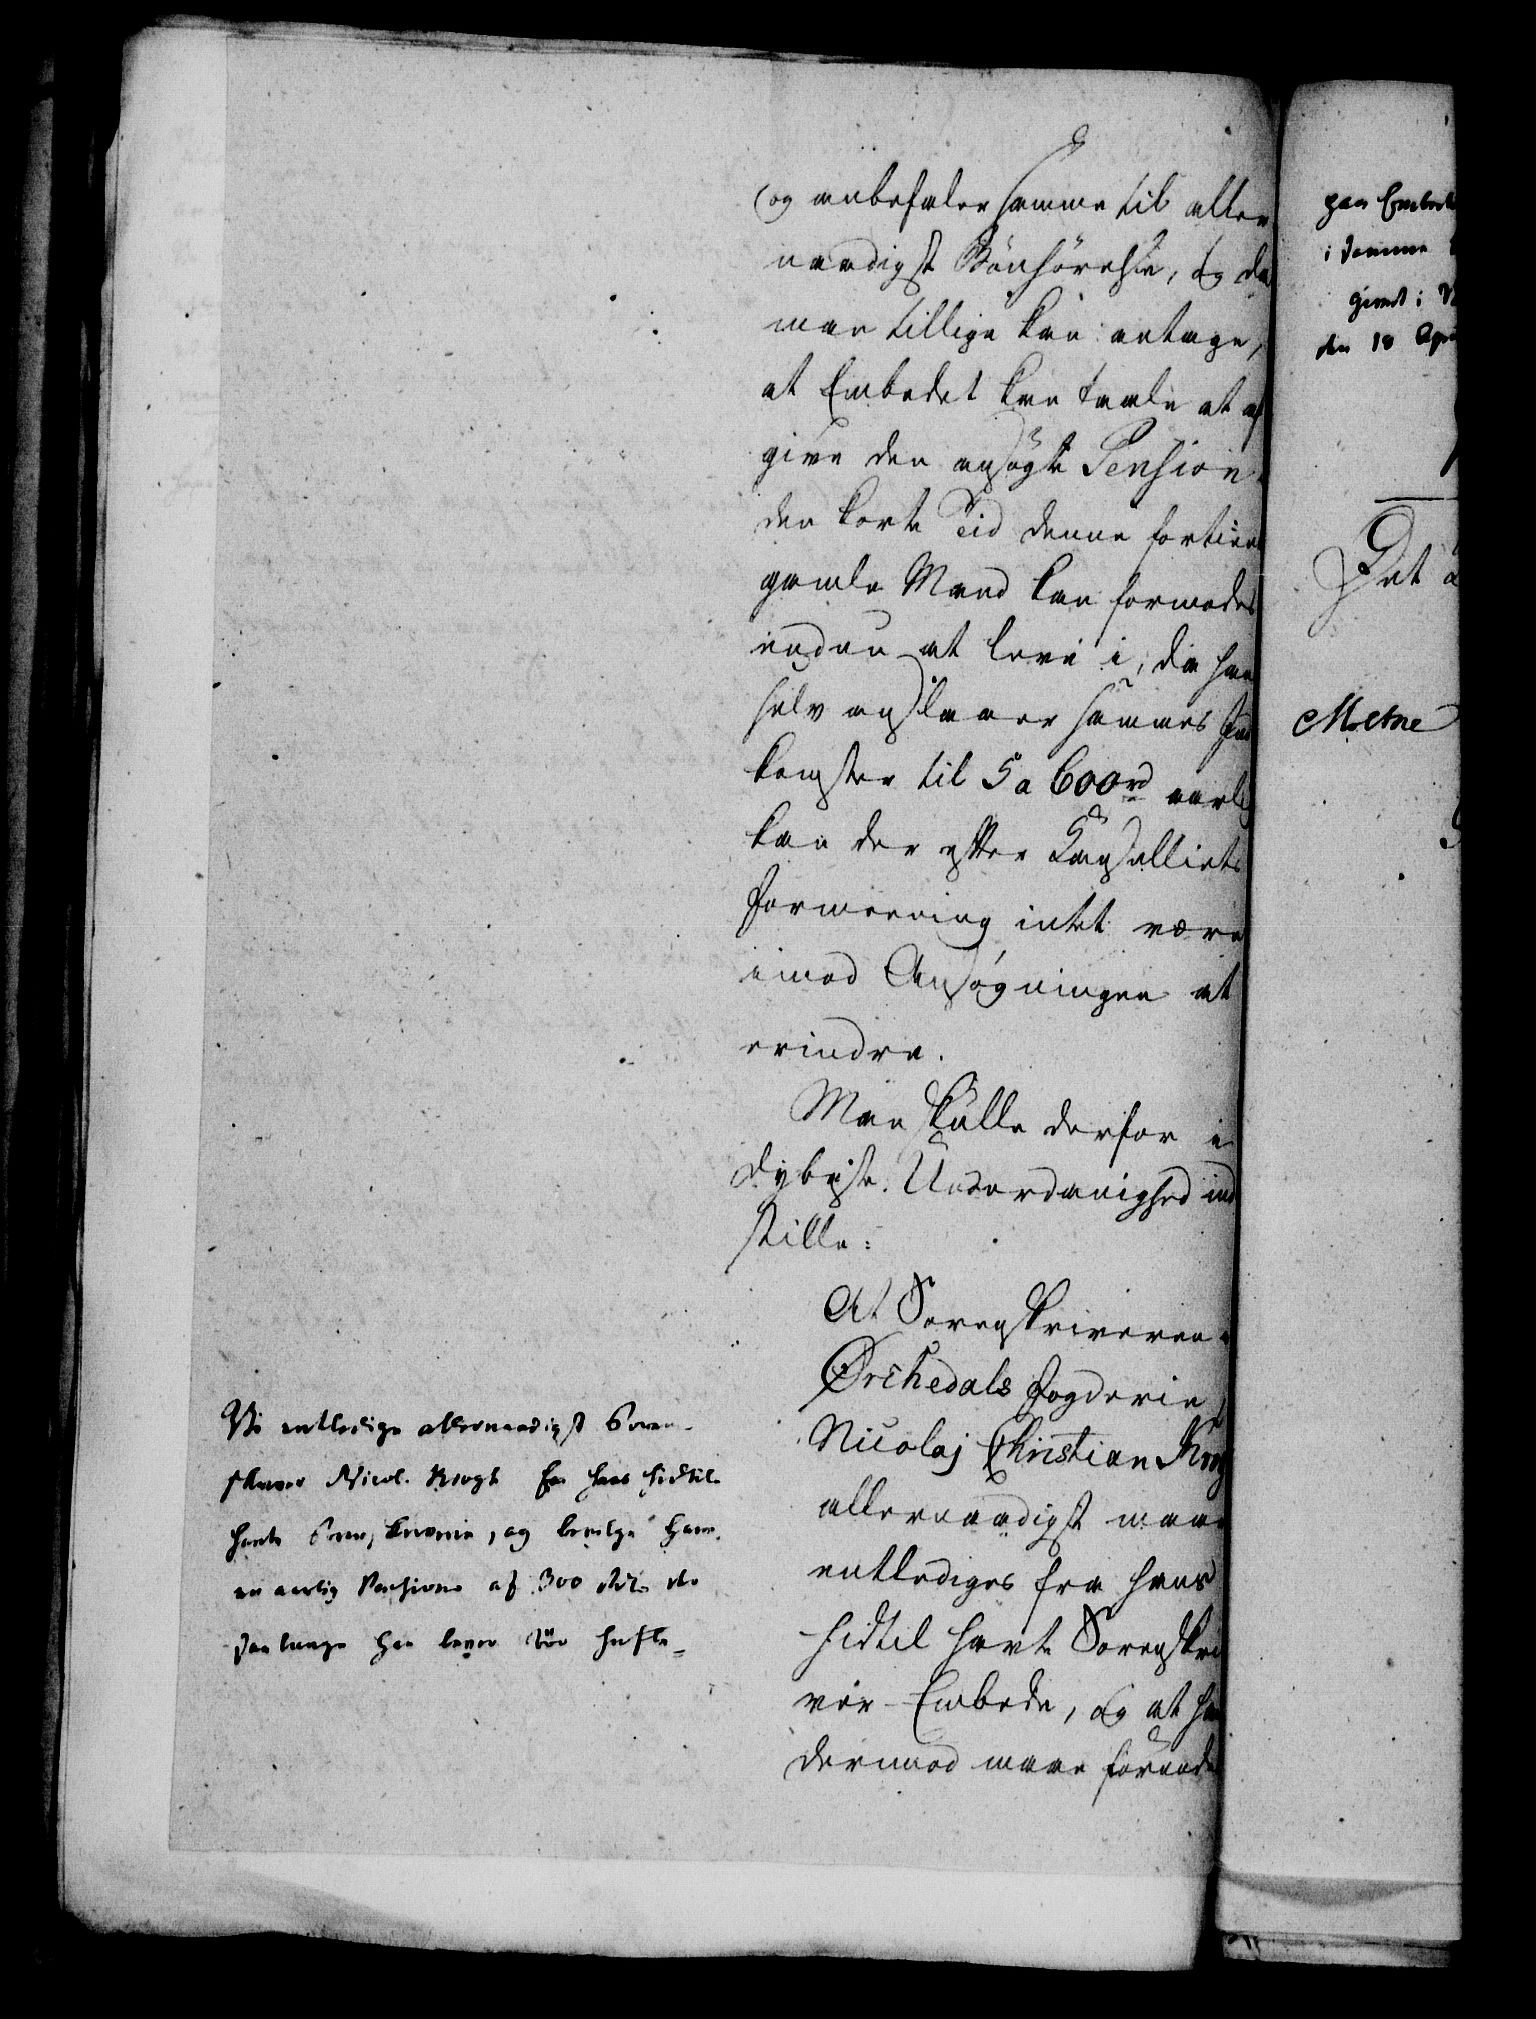 og anbefaler samme til aller
naadigst Bønhørelse, og da
man tillige kan antage,
at Embedet kan taale at af
give den ansøgte Pension
den korte Tid denne fortient
gamle Mand kan formodes
endnu at leve i, da han
selv anslaaer sammes Ind
komster til 5 a 600 rd aarlig
kan der efter Kancelliets
Formeening intet være
imod Ansøgningen at
erindre.
Man skulle derfor i
dybeste Underdanighed ind
stille:
At Sorenskriveren i
Ørchedals Fogderie,
Nicolaj Christian Krog
allernaadigst maae
entlediges fra hans
hidtil havte Sorenskri
ver-Embede, og at han
derimod maae forunde
Vi entledige allernaadigst Soren-
skriver Nicol. Krogh fra hans hidtil
havte Sorenskriverie, og bevilge ham
en aarlig Pension af 300 rdlr. der
saa længe han lever bør hefte
paa Embed
i samme
givet i
den 18 Apri
Det